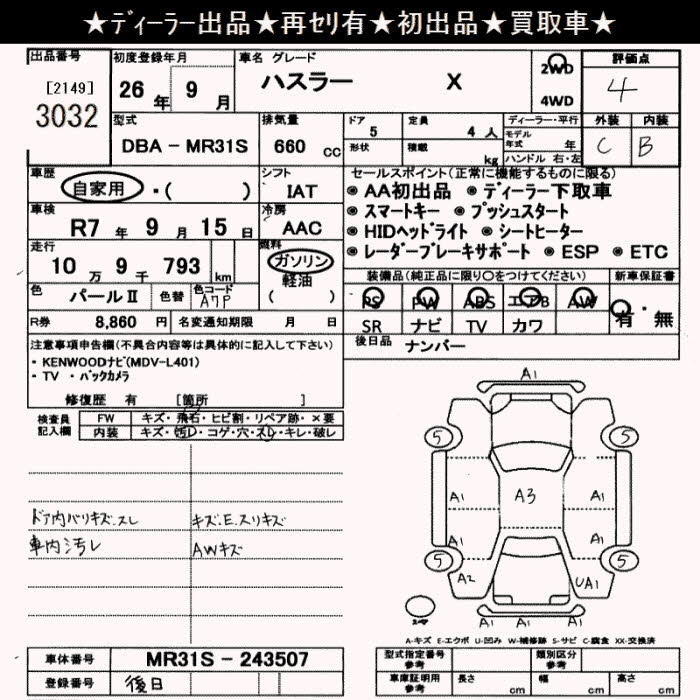 ★ディーラー出品★再セリ有★初出品★買取車★
出品番号
[2149]
3032
初度登録年月
26 年 9 月
車名 グレード
ハスラー X
2WD
4WD
評価点
4
型式
DBA - MR31S
排気量
660 cc
ドア
5
定員
4 人
形状
積載
kg
ディーラー・平行
モデル年式 年
ハンドル 右・左
外装 内装
C B
車歴
自家用 ・( )
シフト
IAT
車検
R7 年 9 月 15 日
冷房
AAC
走行
10 万 9 千 793 km
燃料
ガソリン
軽油
( )
色
パールⅡ
色替
色コード
A7P
R券 8,860 円 名変通知期限 月 日
セールスポイント(正常に機能するものに限る)
◉ AA初出品 ◉ ディーラー下取車
◉ スマートキー ◉ プッシュスタート
◉ HIDヘッドライト ◉ シートヒーター
◉ レーダーブレーキサポート ◉ ESP ◉ ETC
装備品(純正品に限り○をつけてください) 新車保証書
PS PW ABS エアB AW 有・無
SR ナビ TV カワ
後日品 ナンバー
注意事項申告欄(不具合内容等は具体的に記入して下さい)
・KENWOODナビ(MDV-L401)
・TV ・バックカメラ
修復歴 有 [箇所
検査員記入欄
FW キズ・飛石・ヒビ割・リペア跡・×要
内装 キズ・汚レ・コゲ・穴・スレ・キレ・破レ
ドア内バリキズ.スレ キズ.E.スリキズ
車内汚レ AWキズ
A1
5 5
A1 A3 A1
A1 A1
5 5
A2 UA1
A1 A1 A1
A-キズ E-エクボ U-凹み W-補修跡 S-サビ C-腐食 XX-交換済
車体番号 MR31S - 243507
登録番号 後日
型式指定番号 参考
類別区分 参考
車庫証明用 参考
長さ cm 幅 cm 高さ cm